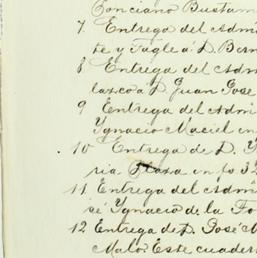 Ponciano Bustam
7 Entrega del Admi
te y Tagle a D. Bern
8 Entrega del Adm
laxcoa D. Juan Jose
9 Entrega del Admi
Ygnacio Maciel in
10 Entrega de D. Y
ria Plaza in fo 32
11 Entrega del Admi
sé Ygnacio de la Fo
12 Entrega de D. José M
Malor Este cuader